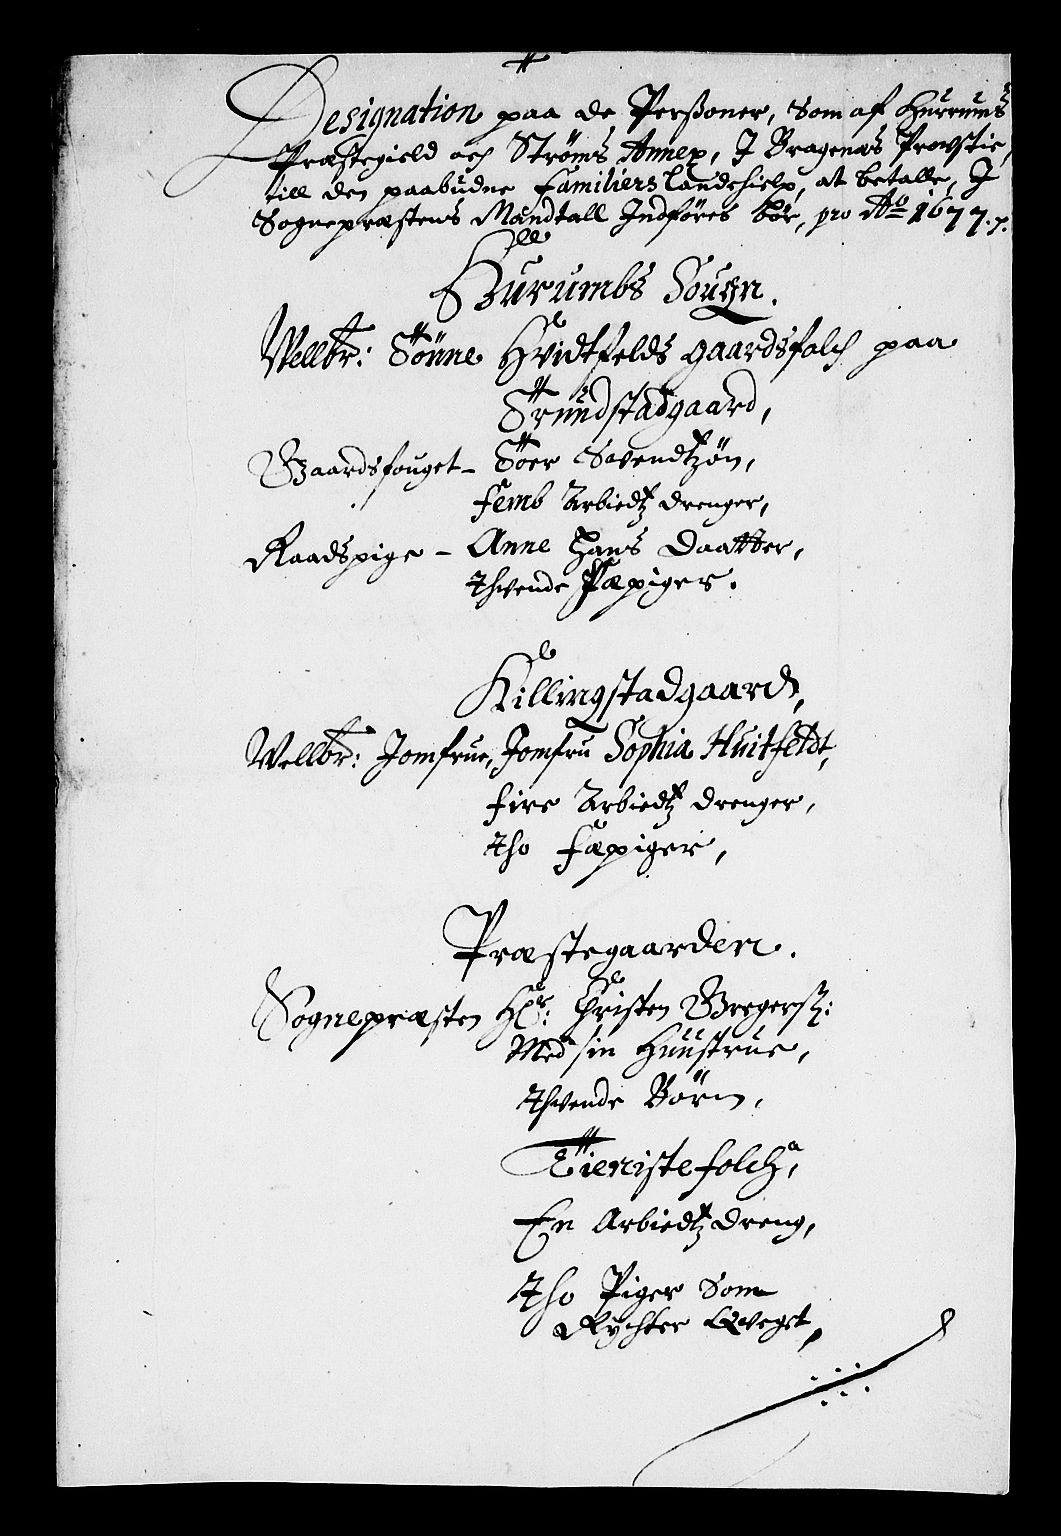 Designation paa de Perßoner, Som af Hurrums
Præstegield och Strøms Annex, J Bragenæs Provstie,
till den paabudne Familiers landehielp, at betalle, J
Sognepræstens Mandtall Indføres bør, pro Ao 1677.
Hurumbs Sougn.
Wellbr: Tønne Hvidtfelds gaardsfolch paa
Trundstadgaard,
Gaardsfouget - Toer Svendtzøn,
femb Arbiedtz drenger,
Raadspige - Anne Hans Daatter,
thvende Fæpiger.
Killingstadgaard,
Wellbr: Jomfrue, Jomfru Sophia Huitfeldt,
fire Arbiedtz drenger,
tho fæpiger,
Præstegaarden.
Sognepræsten Hr: Christen Gregerß:
Med sin Huustrue,
thvende Børn,
Tienistefolch,
En Arbiedtz dreng,
tho Piger Som
Rychter Qveget,